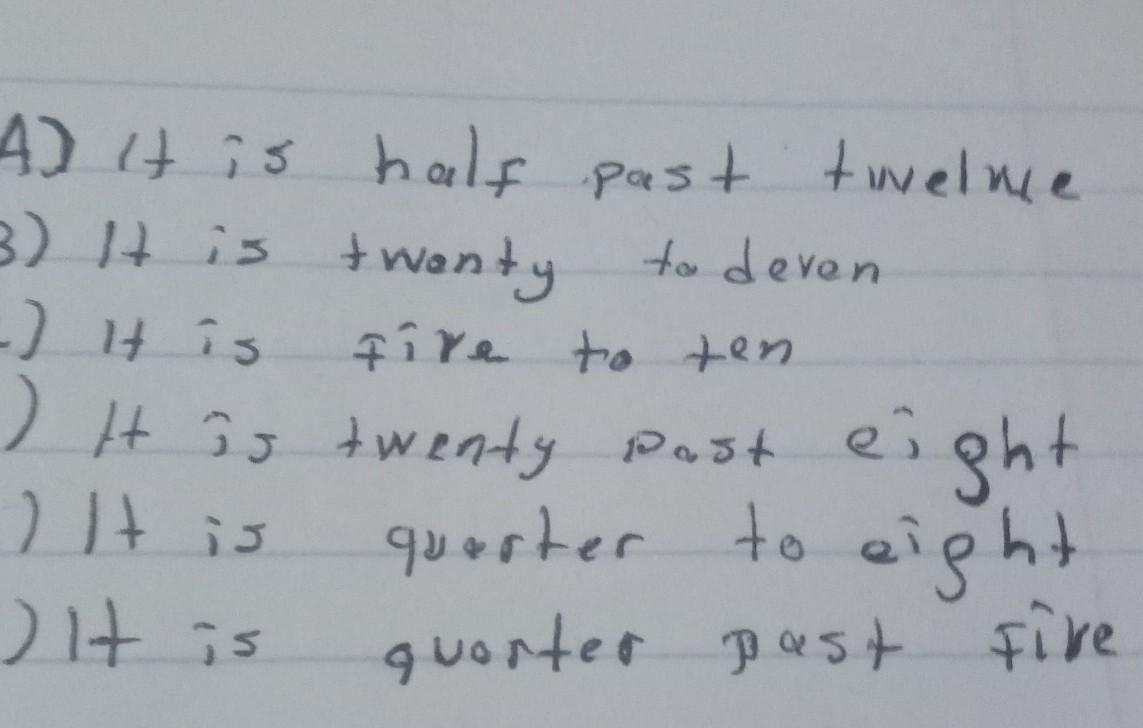 A) It is half past twelve
B) It is twenty to eleven
) It is five to ten
) It is twenty past eight
) It is quarter to eight
) It is quarter past five